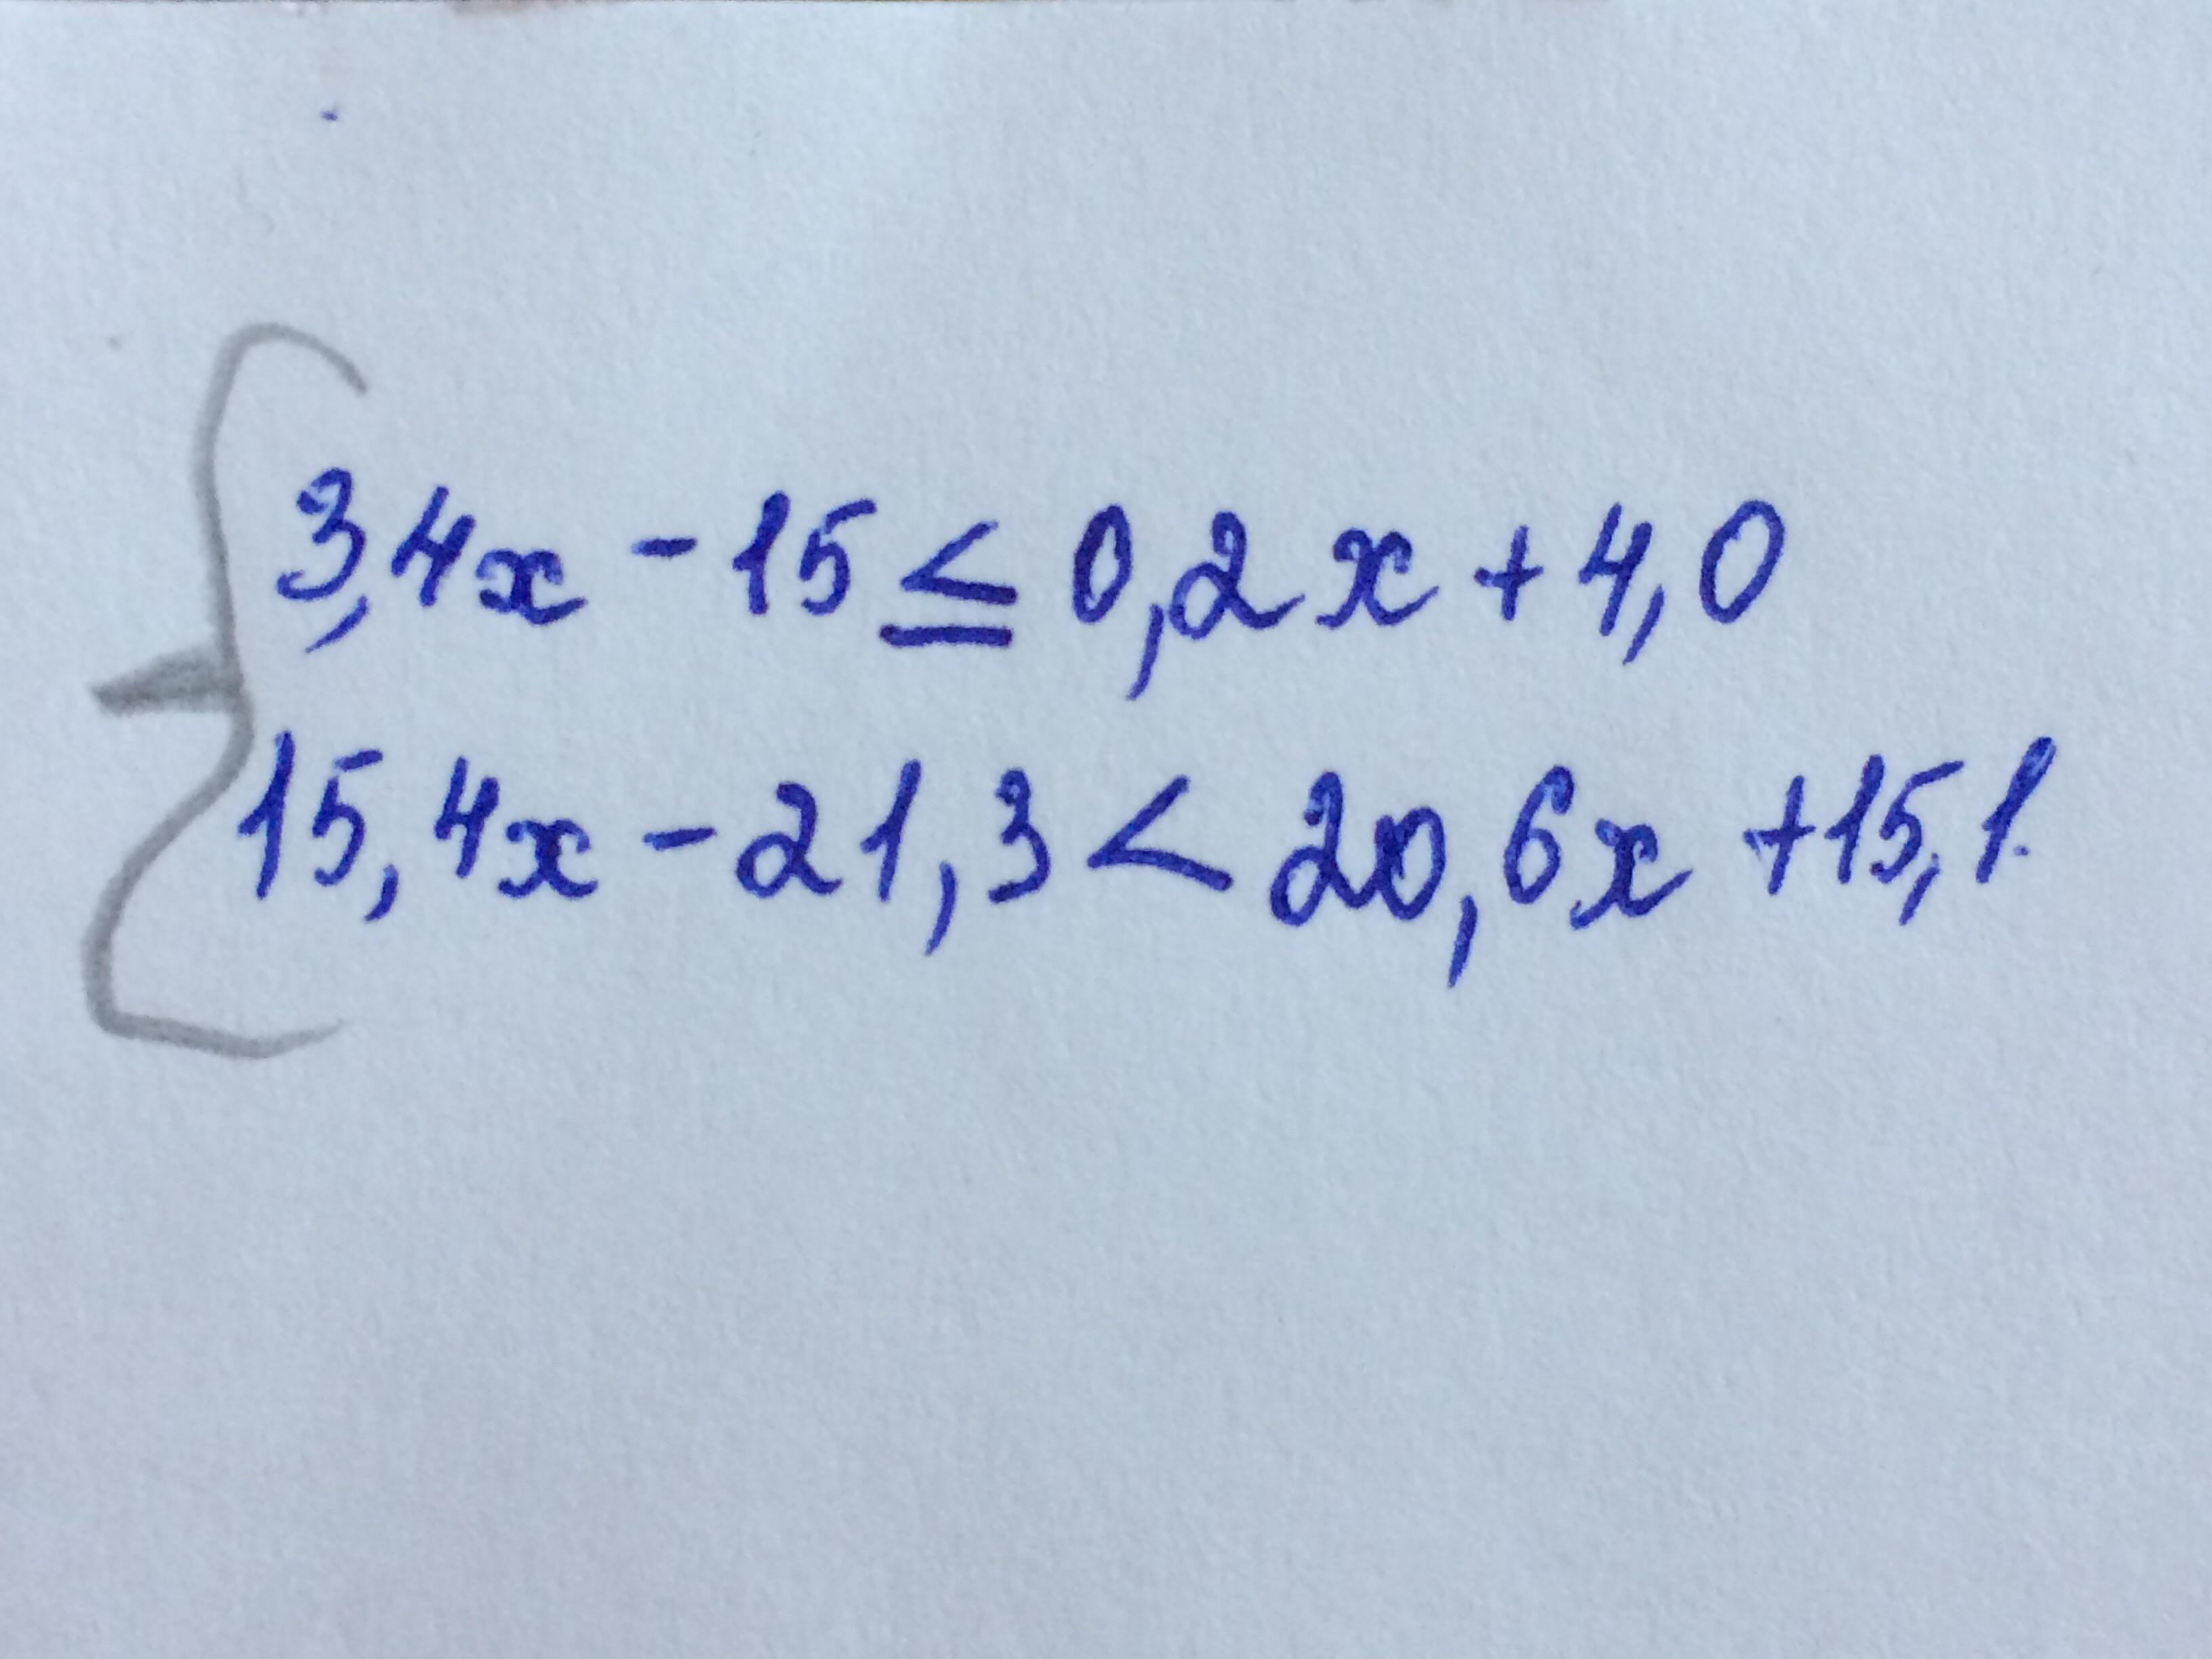 3,4x - 15 ≤ 0,2x + 4,0
15,4x - 21,3 < 20,6x + 15,1.